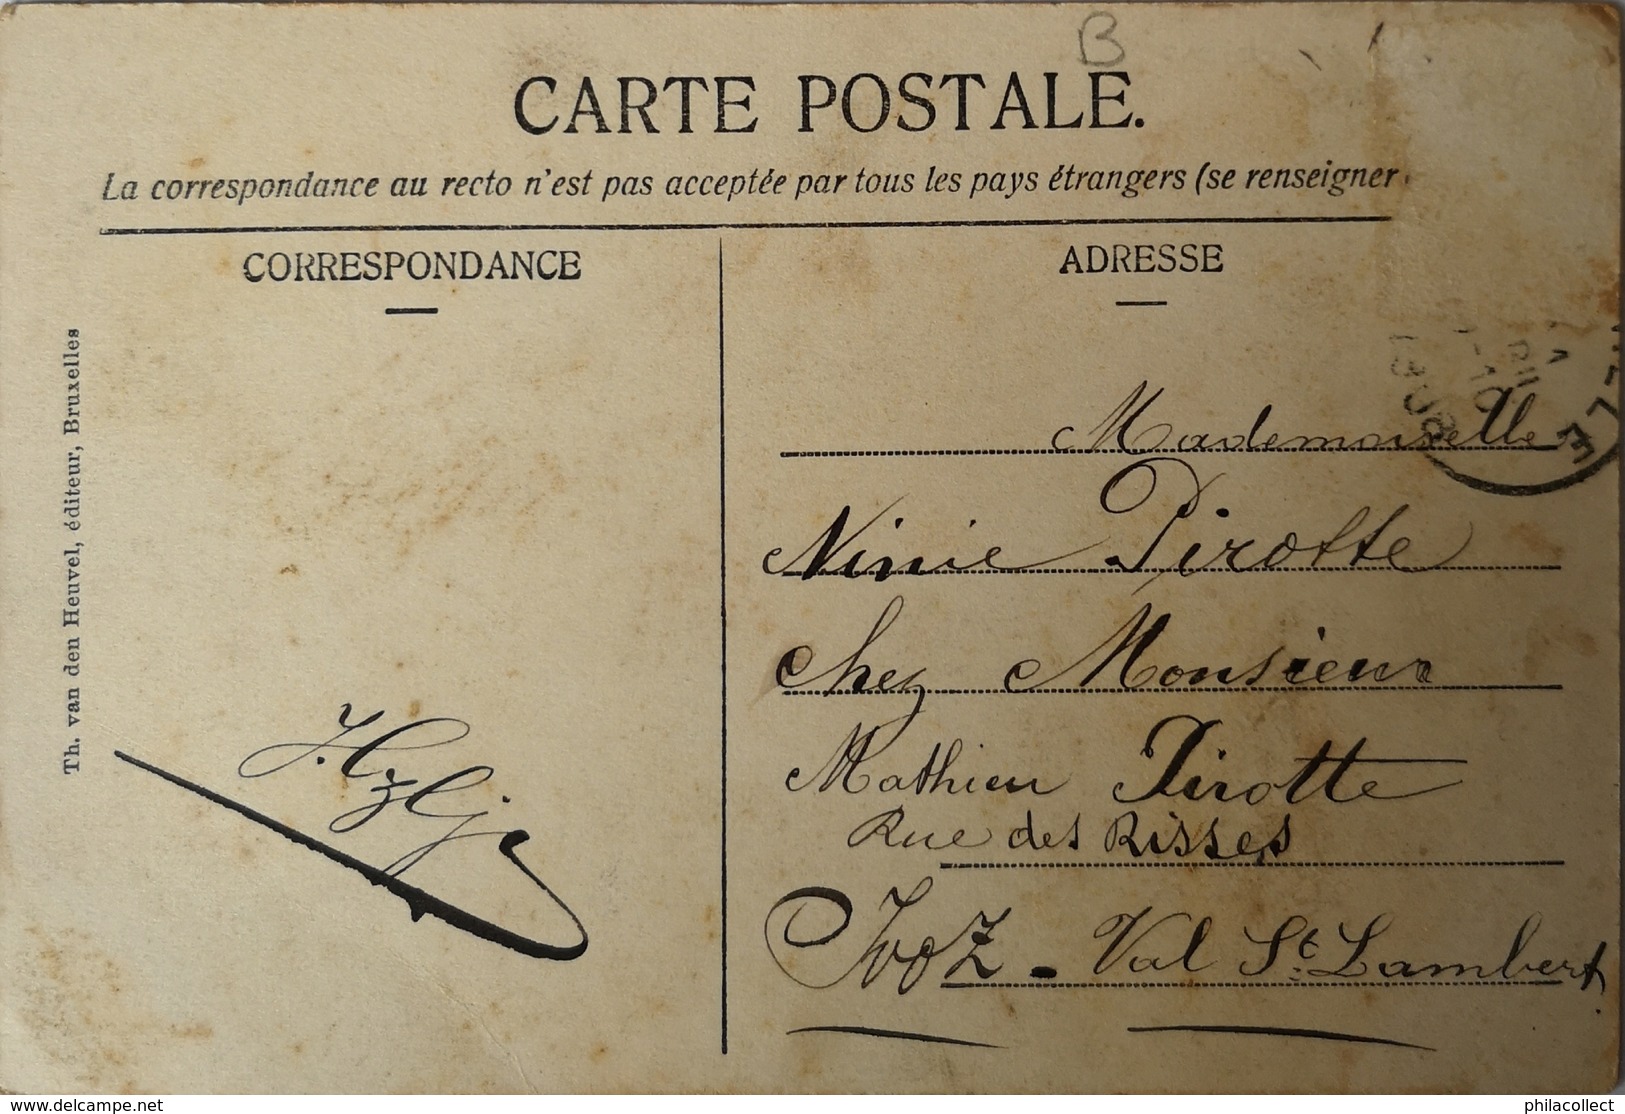 B
CARTE POSTALE.
La correspondance au recto n'est pas acceptée par tous les pays étrangers (se renseigner
CORRESPONDANCE
ADRESSE
Th. van den Heuvel, éditeur, Bruxelles
Mademoiselle
Ninie Pirotte
chez Monsieur
Mathieu Pirotte
Rue des Risses
Ivoz - Val St. Lambert
www.delcampe.net
philacollect